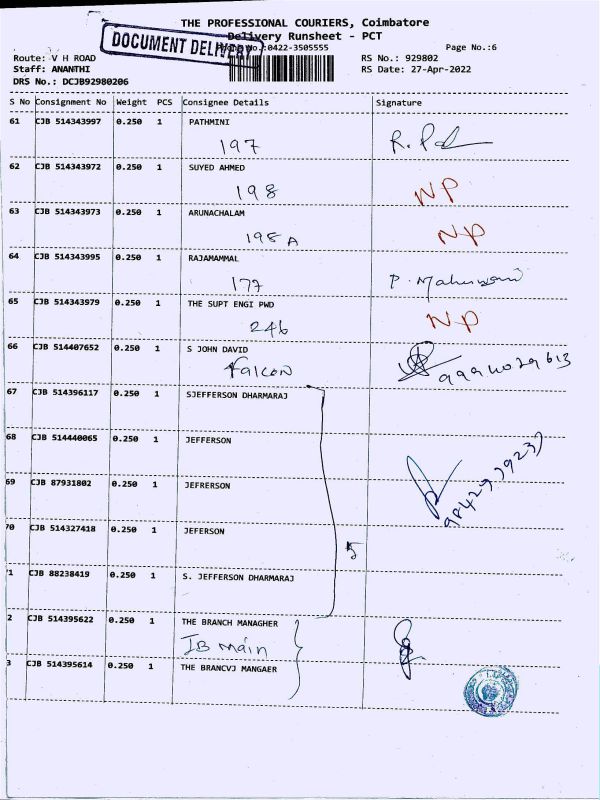 THE PROFESSIONAL COURIERS, Coimbatore
Delivery Runsheet - PCT
DOCUMENT DELIVERY
Phone No.:0422-3505555
Page No.:6
Route: V H ROAD
RS No.: 929802
Staff: ANANTHI
RS Date: 27-Apr-2022
DRS No.: DCJB92980206
S No Consignment No Weight PCS Consignee Details Signature
61 CJB 514343997 0.250 1 PATHMINI
197
62 CJB 514343972 0.250 1 SUYED AHMED
198 NP
63 CJB 514343973 0.250 1 ARUNACHALAM
198 A NP
64 CJB 514343995 0.250 1 RAJAMAMMAL
177 P.
65 CJB 514343979 0.250 1 THE SUPT ENGI PWD
246 NP
66 CJB 514407652 0.250 1 S JOHN DAVID
Falcon
67 CJB 514396117 0.250 1 SJEFFERSON DHARMARAJ
68 CJB 514440065 0.250 1 JEFFERSON
69 CJB 87931802 0.250 1 JEFRERSON
70 CJB 514327418 0.250 1 JEFERSON
5
1 CJB 88238419 0.250 1 S. JEFFERSON DHARMARAJ
2 CJB 514395622 0.250 1 THE BRANCH MANAGHER
IB main
3 CJB 514395614 0.250 1 THE BRANCVJ MANGAER